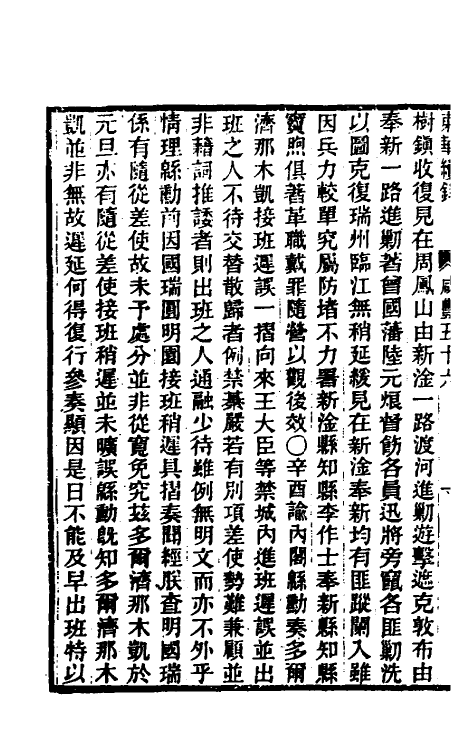 東華續錄　咸豐五十六
樹鎭收復見在周鳳山由新淦一路渡河進勦遊擊遮克敦布由
奉新一路進勦著曾國藩陸元烺督飭各員迅將旁竄各匪勦洗
以圖克復瑞州臨江無稍延緩見在新淦奉新均有匪蹤闌入雖
因兵力較單究屬防堵不力署新淦縣知縣李作士奉新縣知縣
寶煦俱著革職戴罪隨營以觀後效○辛酉諭內閣緜勳奏多爾
濟那木凱接班遲誤一摺向來王大臣等禁城內進班遲誤並出
班之人不待交替散歸者例禁綦嚴若有別項差使勢難兼顧並
非藉詞推諉者則出班之人通融少待雖例無明文而亦不外乎
情理緜勳前因國瑞圓明園接班稍遲具摺奏聞經朕查明國瑞
係有隨從差使故未予處分並非從寬免究茲多爾濟那木凱於
元旦亦有隨從差使接班稍遲並未曠誤緜勳旣知多爾濟那木
凱並非無故遲延何得復行參奏顯因是日不能及早出班特以